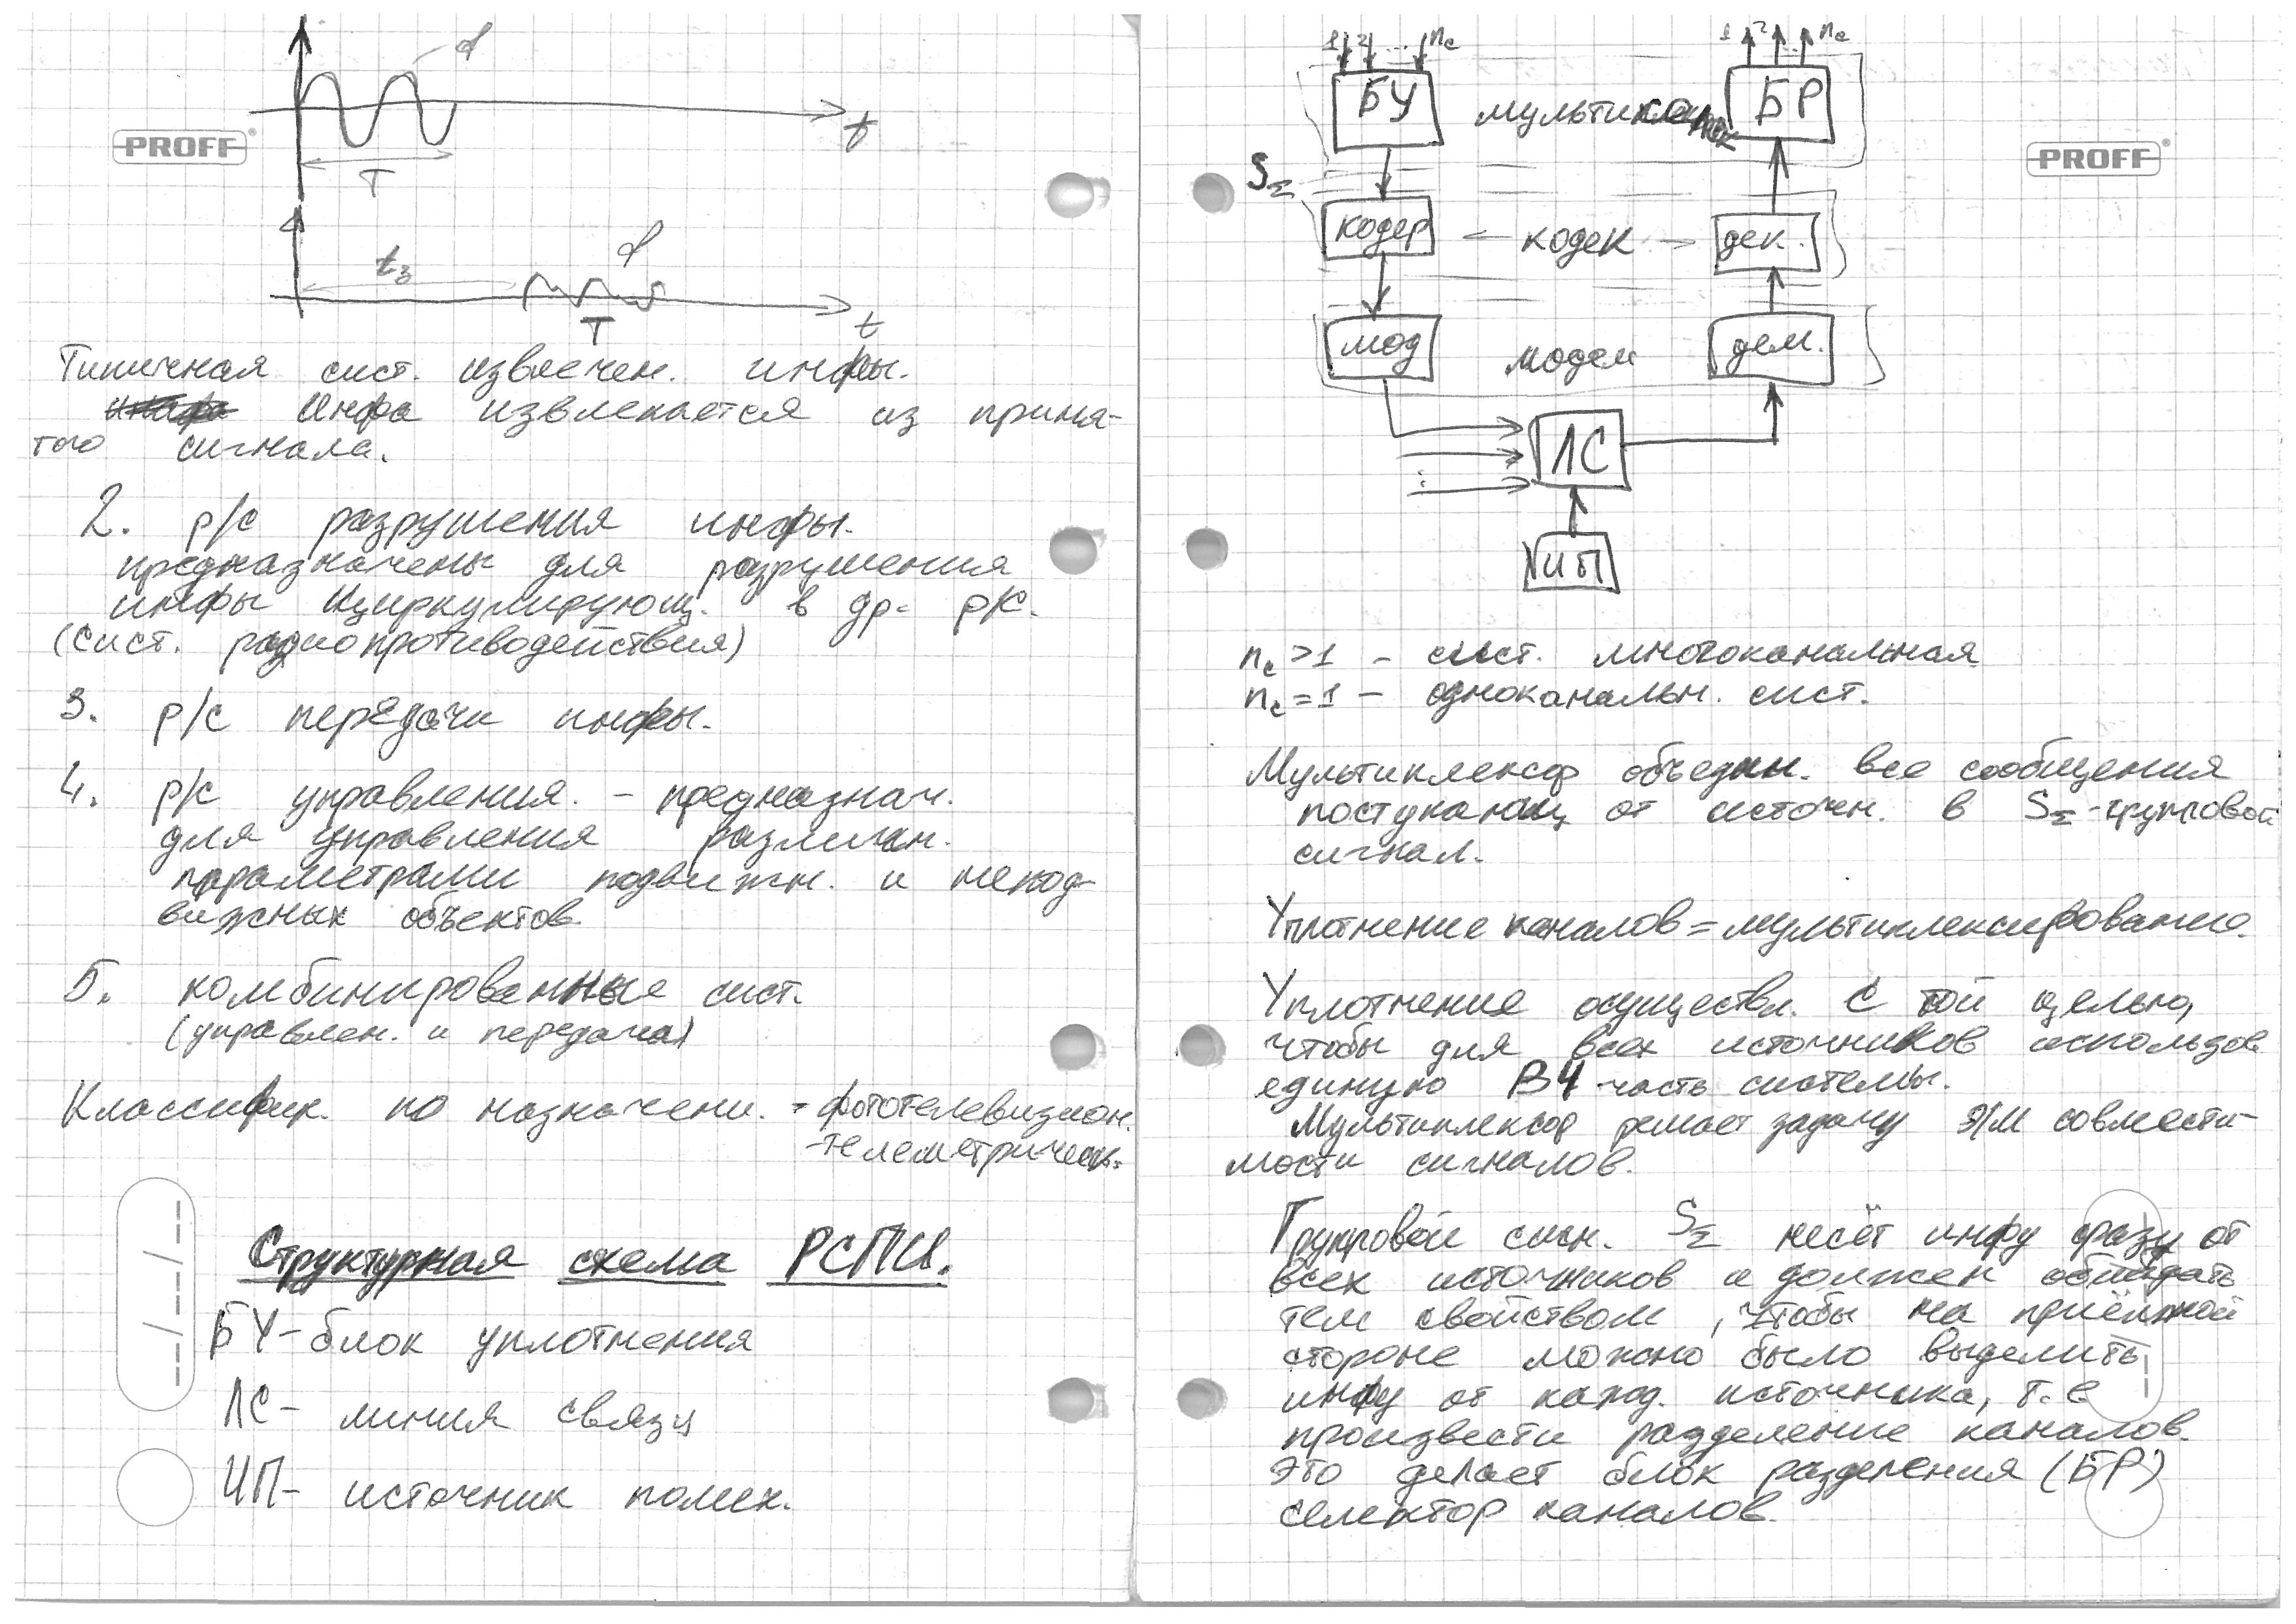 f
t
PROFF
T
f
tз
T
t
Типичная сист. извлечен. инфы.
Инфа извлекается из приня-
того сигнала.
2. р/с разрушения инфы.
предназначены для разрушения
инфы циркулирующ. в др. р/с.
(сист. радиопротиводействия)
3. р/с передачи инфы.
4. р/с управления. - предназнач.
для управления различн.
параметрами подвижн. и непод-
вижных объектов.
5. комбинированные сист.
(управлен. и передача)
Классифик. по назначени. - фототелевизион.
- телеметрическ.
Структурная схема РСПИ.
БУ - блок уплотнения
ЛС - линия связи
ИП - источник помех.
1 2 ... nc
1 2 ... nc
БУ мультиплекс БР
PROFF
SΣ
кодер - кодек - дек.
мод модем дем.
ЛС
ИП
nc >1 - сист. многоканальная
nc =1 - одноканальн. сист.
Мультиплексор объедин. все сообщения
поступающ от источн. в SΣ - групповой
сигнал.
Уплотнение каналов = мультиплексирование.
Уплотнение осуществл. с той целью,
чтобы для всех источников использов
единую ВЧ часть системы.
Мультиплексор решает задачу Э/М совмести-
мости сигналов.
Групповой сигн. SΣ несёт инфу сразу от
всех источников и должен обладать
тем свойством, чтобы на приёмной
стороне можно было выделить
инфу от кажд. источника, т.е
произвести разделение каналов.
Это делает блок разделения (БР)
селектор каналов.